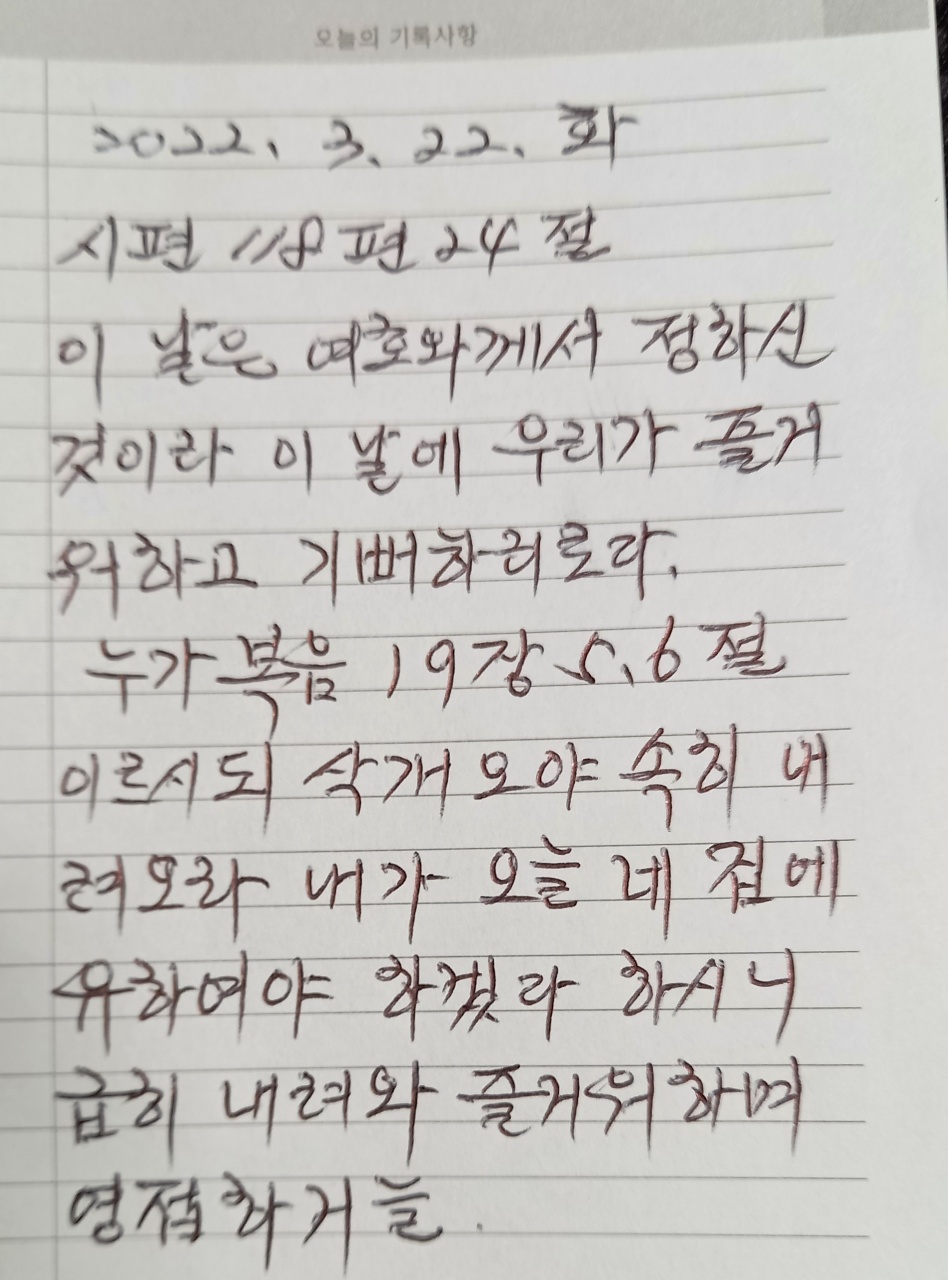 오늘의 기록사항
2022. 3. 22. 화
시편 118편 24절
이 날은 여호와께서 정하신
것이라 이 날에 우리가 즐거
워하고 기뻐하리로다.
누가복음 19장 5.6절
이르시되 삭개오야 속히 내
려오라 내가 오늘 네 집에
유하여야 하겠다 하시니
급히 내려와 즐거워하며
영접하거늘.